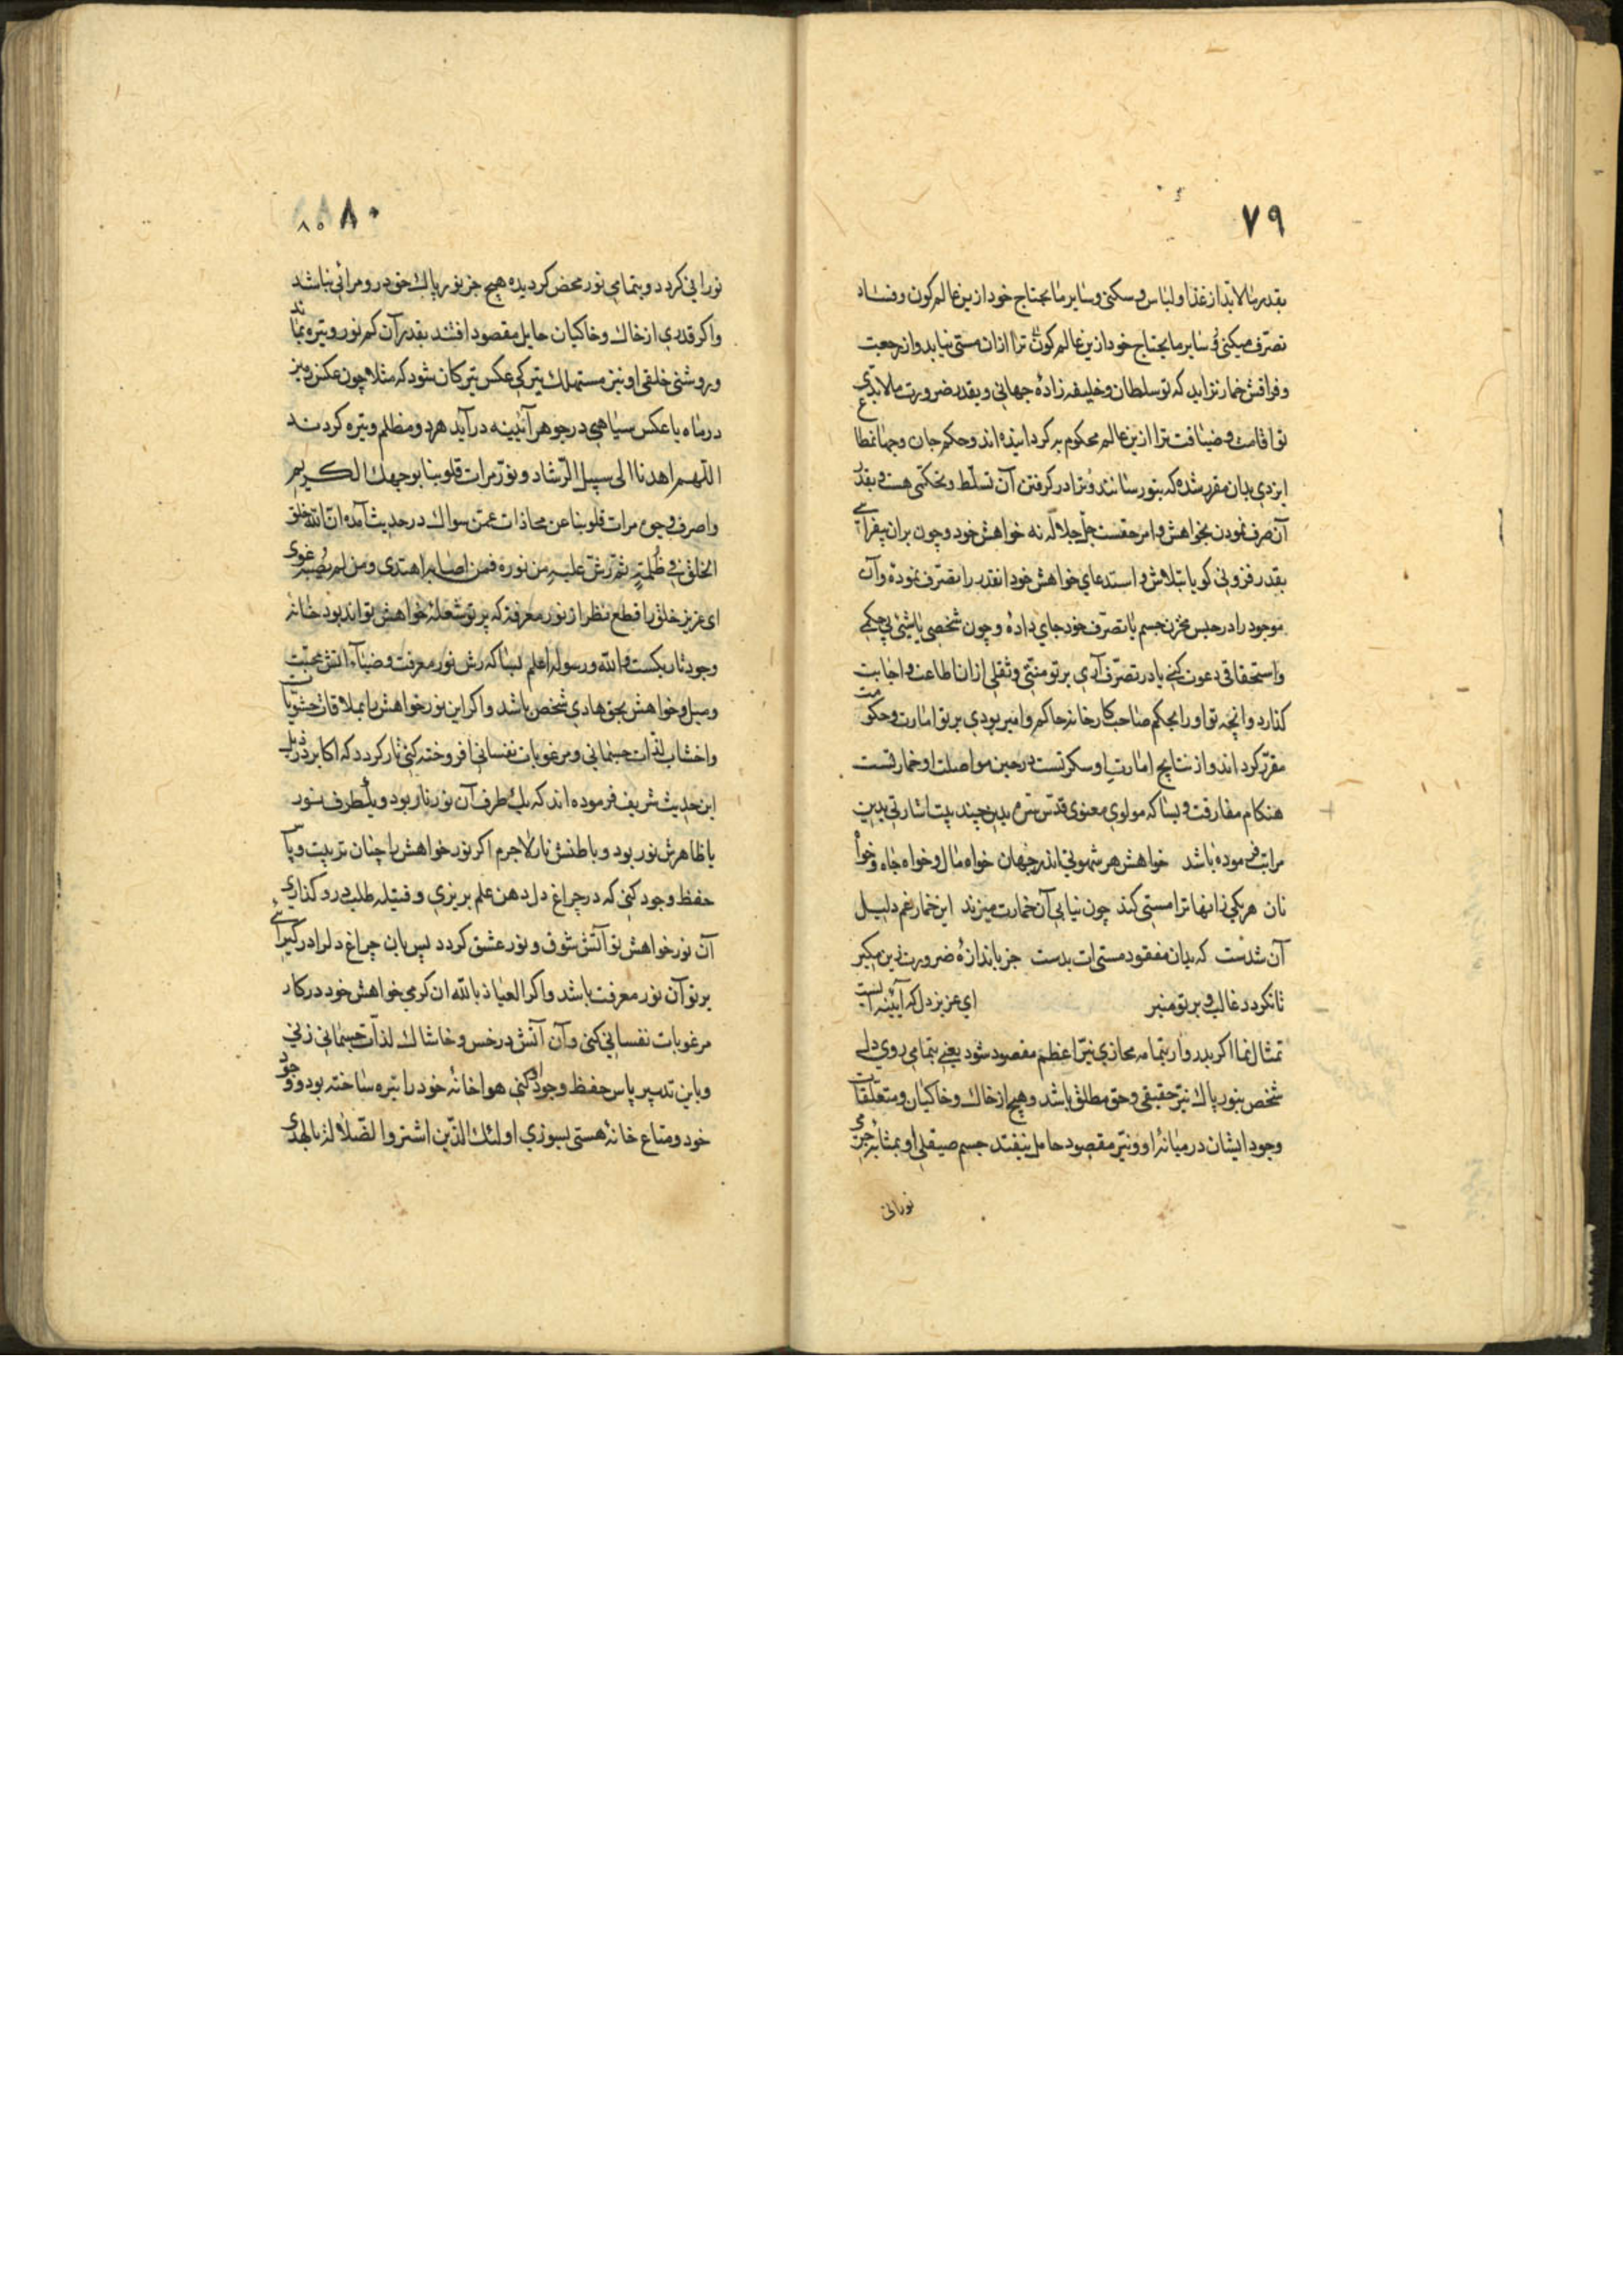 ۷۹
بقدر مالابد از غذا و لباس و سکنی و سایر ما یحتاج خود ازین عالم کون و فساد
تصرف میکنی و سایر ما یحتاج خود ازین عالم کون ترا ازان مستی نیاید و از رجعت
و فراقش خمار نزاید که تو سلطان و خلیفه زادهٔ جهانی و بقدر ضرورت مالابدی
تو اقامت و ضیافت ترا ازین عالم محکوم به کردانیده اند و حکم جان و جهان مطاع
ایزدی بدان مقرر شده که بتو رسانند و ترا در کرفتن آن تسلط و تحکمی هست و بقدر
آن صرف نمودن بخواهش و امر حقست جل جلاله نه خواهش خود و چون بران بیفزایی
بقدر فزونی کویا بتلاش و استدعای خواهش خود انقدر را بتصرف نموده و آن
موجود را در حبس مخزن جسم یا تصرف خود جای داده و چون شخصی یا شیئ بی حکمی
و استحقاقی دعوت کنی یا در تصرف آری بر تو منتی و ثقلی ازان اطاعت و اجابت
کذارد و انچه تو او را بحکم صاحب کارخانه حاکم و امیر بودی بر تو امارت و حکومت
مقرر کرد اند و از نتایج امارت او سکر تست در حین مواصلت او خمار تست
هنکام مفارقت و بسا که مولوی معنوی قدس سره بدین چند بیت اشارتی بدین
مراتب فرموده باشد خواهش هر شهوتی اندر جهان خواه مال و خواه جاه و خواه
نان هر یکی زانها ترا مستی کند چون نیابی آن خمارت میزند این خمار غم دلیل
آن شدست که بدان مفقود مستی ات بدست جز باندازهٔ ضرورت زین مکیر
تانکردد غالب و بر تو منیر ای عزیز دل که آیینه ایست
تمثال نما اکر بدر وار بتمامه محازی نیر اعظم مقصود شود یعنی بتمامی روی دلی
شخص بنور پاک نیر حقیقی و حق مطلق باشد و هیچ از خاک و خاکیان و متعلقات
وجود ایشان در میانهٔ او و نیر مقصود حامل نیفتد جسم صیقلی او بمثابه جرمی
نورانی
۸۰
۸۰
نورانی کردد و بتمامی نور محض کردیده هیچ جز نور پاک حق در و مرائی نباشد
و اکر قدری از خاک و خاکیان حایل مقصود افتند بقدر آن کم نور و تیره نماید
و روشنی خلقی او نیز مستهلک تیرکی عکس تیرکان شود که مثلا چون عکس زمین
در ماه یا عکس سیاهی در جوهر آیینه در آید هر دو مظلم و تیره کردند
اللهم اهدنا الی سبیل الرشاد و نور مرات قلوبنا بوجهک الکریم
و اصرف وجوه مرات قلوبنا عن محاذات عمن سواک در حدیث آمده ان الله خلق
الخلق فی ظلمة ثم رش علیه من نوره فمن اصابه اهتدی و من لم یصبه غوی
ای عزیز خلق را قطع نظر از نور معرفت که پرتو شعلهٔ خواهش تواند بود خانه
وجود تاریکست و الله و رسوله اعلم بسا که رش نور معرفت و ضیاء آتش محبت
و میل و خواهش بحق هادی شخص باشد و اکر این نور خواهش را بملاقات خشویات
و اخشاب لذات جسمانی و مرغوبات نفسانی افروخته کنی نار کردد که اکابر در ذیل
این حدیث شریف فرموده اند که یک طرف آن نور نار بود و یک طرف نور
یا ظاهرش نور بود و باطنش نار لاجرم اکر نور خواهش را چنان تربیت و پاس
حفظ وجود کنی که در چراغ دل دهن علم بریزی و فتیله طلب درو کذاری
آن نور خواهش تو آتش شوق و نور عشق کردد پس بان چراغ دل را در کیرانی
بر تو آن نور معرفت باشد و اکر العیاذ بالله ان کرمی خواهش خود در کار
مرغوبات نفسانی کنی و آن آتش در خس و خاشاک لذات جسمانی زنی
و باین تدبیر پاس حفظ وجود کنی هوا خانهٔ خود را تیره ساخته بود و وجود
خود و متاع خانهٔ هستی بسوزی اولئک الذین اشتروا الضلالة بالهدی